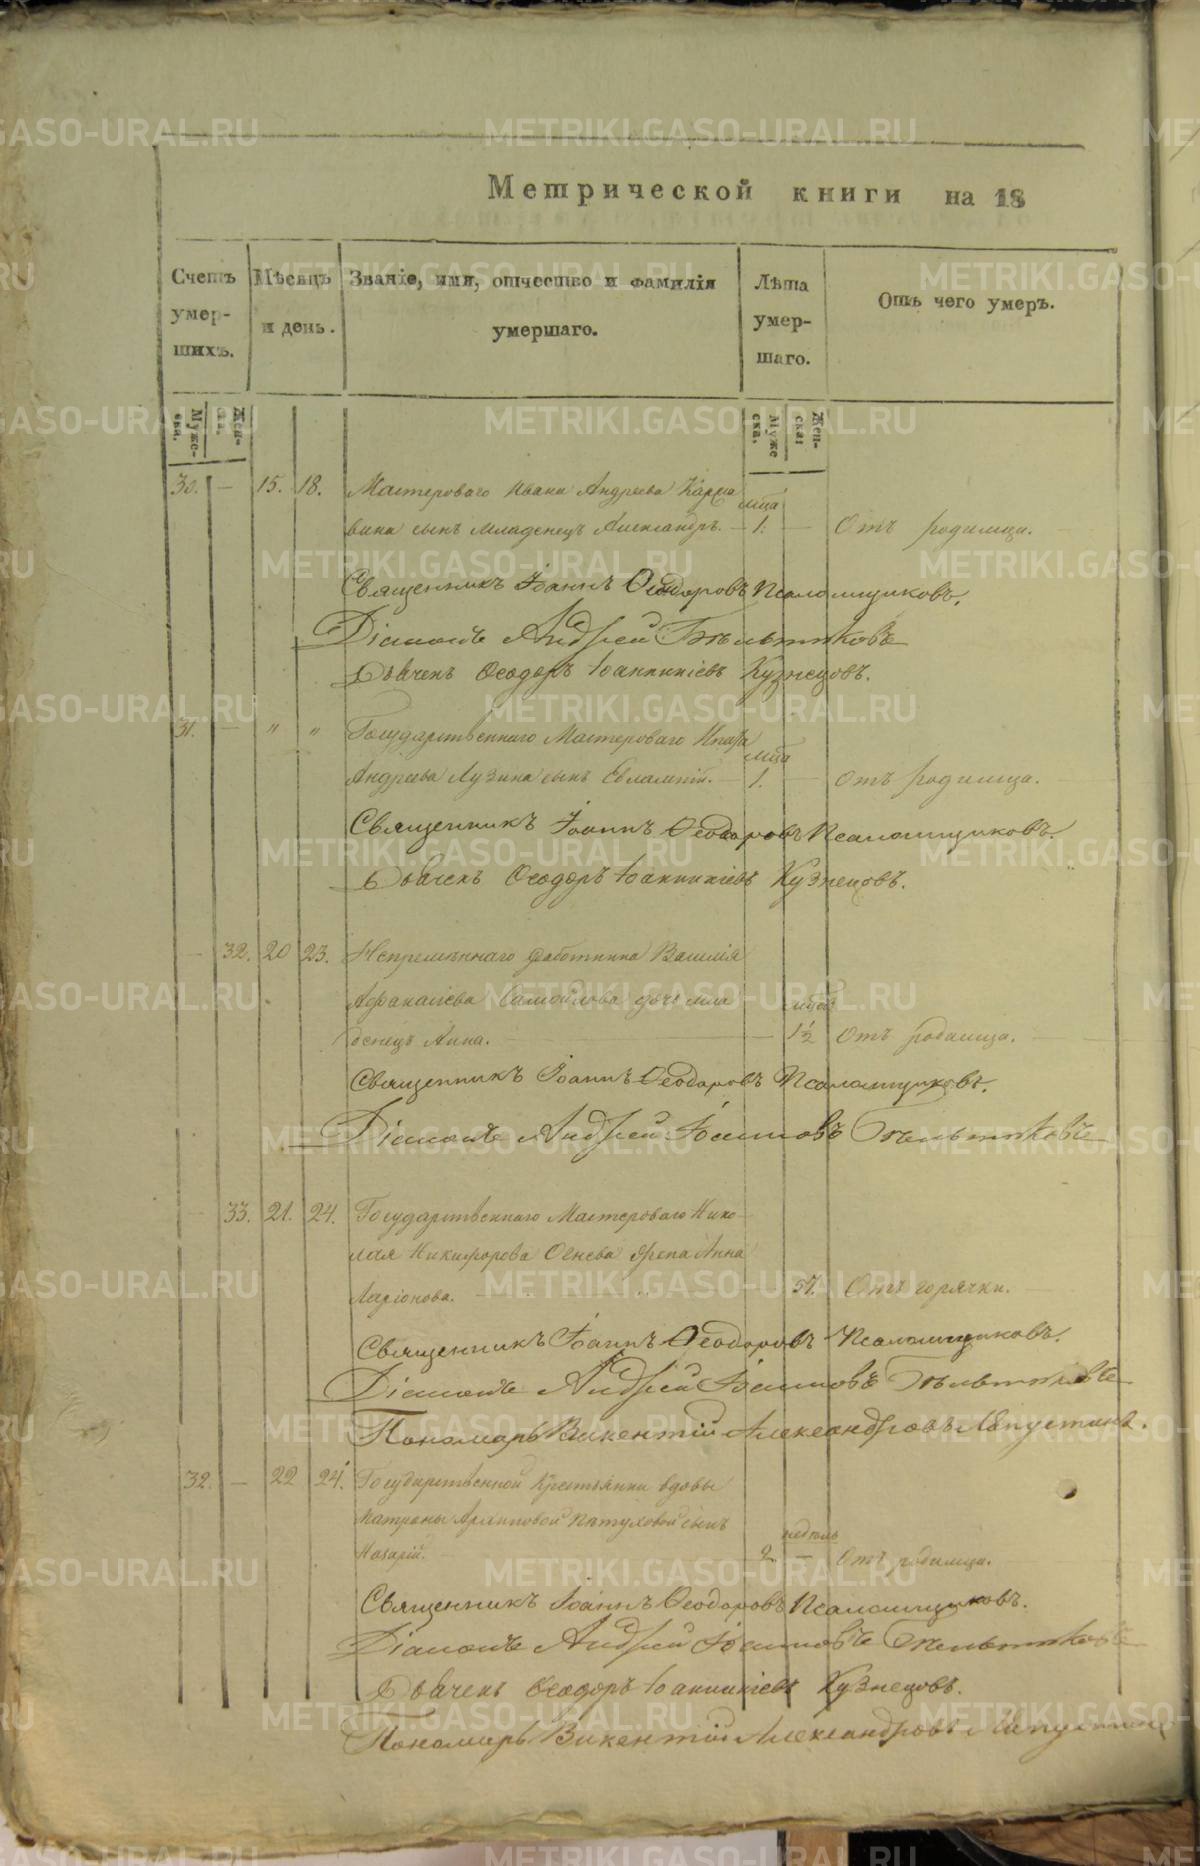 Метрической книги на 18
Счетъ умер- шихъ.
Мѣсяцъ и день.
Званіе, имя, отчество и фамилія умершаго.
Лѣта умер- шаго.
Отъ чего умеръ.
Муже- ска.
Жен- ска.
Муже ска.
Жен- ска:
30. — 15. 18. Мастероваго Ивана Андреева
мца
вина сынъ младенецъ Александръ. — 1. — Отъ родимца.
Священникъ Іоаннъ Ѳеодоровъ Псаломщиковъ.
Діаконъ Андрей
Дьячекъ Ѳеодоръ Іоанникіевъ Кузнецовъ.
31. — " " Государственнаго Мастероваго
мца
Андреева Лузина сынъ Евлампій. — 1. — отъ родимца.
Священникъ Іоаннъ Ѳеодоровъ Псаломщиковъ.
Дьячекъ Ѳеодоръ Іоанникіевъ Кузнецовъ.
— 32. 20 23. Непремѣннаго работника Василія
Афанасіева Самойлова дочь мла
денецъ Анна. — 1½ Отъ родимца.
Священникъ Іоаннъ Ѳеодоровъ Псаломщиковъ.
Діаконъ Андрей
— 33. 21. 24. Государственнаго Мастероваго Нико-
лая Никифорова Огнева жена Анна
Ларіонова. — 57. Отъ горячки.
Священникъ Іоаннъ Ѳеодоровъ Псаломщиковъ.
Діаконъ Андрей
Пономарь Викентій Александровъ
32. — 22 24. Государственной крестьянки вдовы
Матроны Архиповой Пѣтуховой сынъ
недель
Назарій. 2. — Отъ родимца.
Священникъ Іоаннъ Ѳеодоровъ Псаломщиковъ.
Діаконъ Андрей
Дьячекъ Ѳеодоръ Іоанникіевъ Кузнецовъ.
Пономарь Викентій Александровъ
METRIKI.GASO-URAL.RU